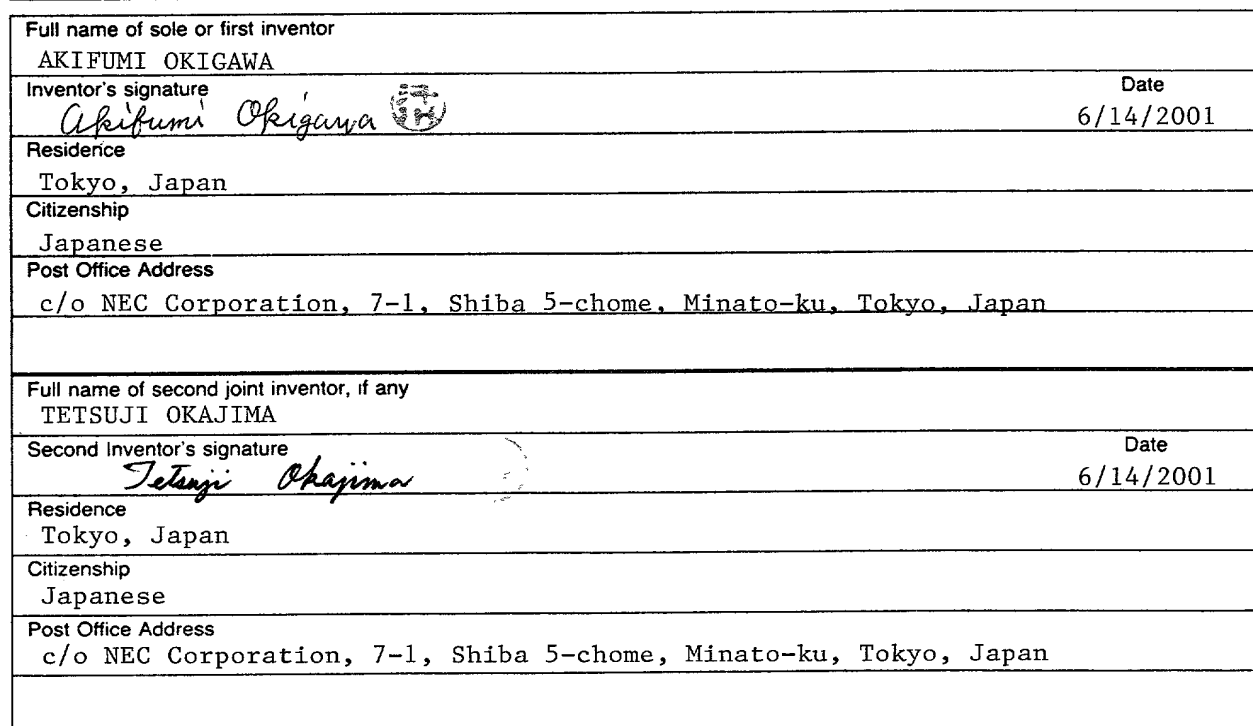 Full name of sole or first inventor
AKIFUMI OKIGAWA
Inventor's signature Date
Akifumi Okigawa 6/14/2001
Residence
Tokyo, Japan
Citizenship
Japanese
Post Office Address
c/o NEC Corporation, 7-1, Shiba 5-chome, Minato-ku, Tokyo, Japan
Full name of second joint inventor, if any
TETSUJI OKAJIMA
Second Inventor's signature Date
Tetsuji Okajima 6/14/2001
Residence
Tokyo, Japan
Citizenship
Japanese
Post Office Address
c/o NEC Corporation, 7-1, Shiba 5-chome, Minato-ku, Tokyo, Japan